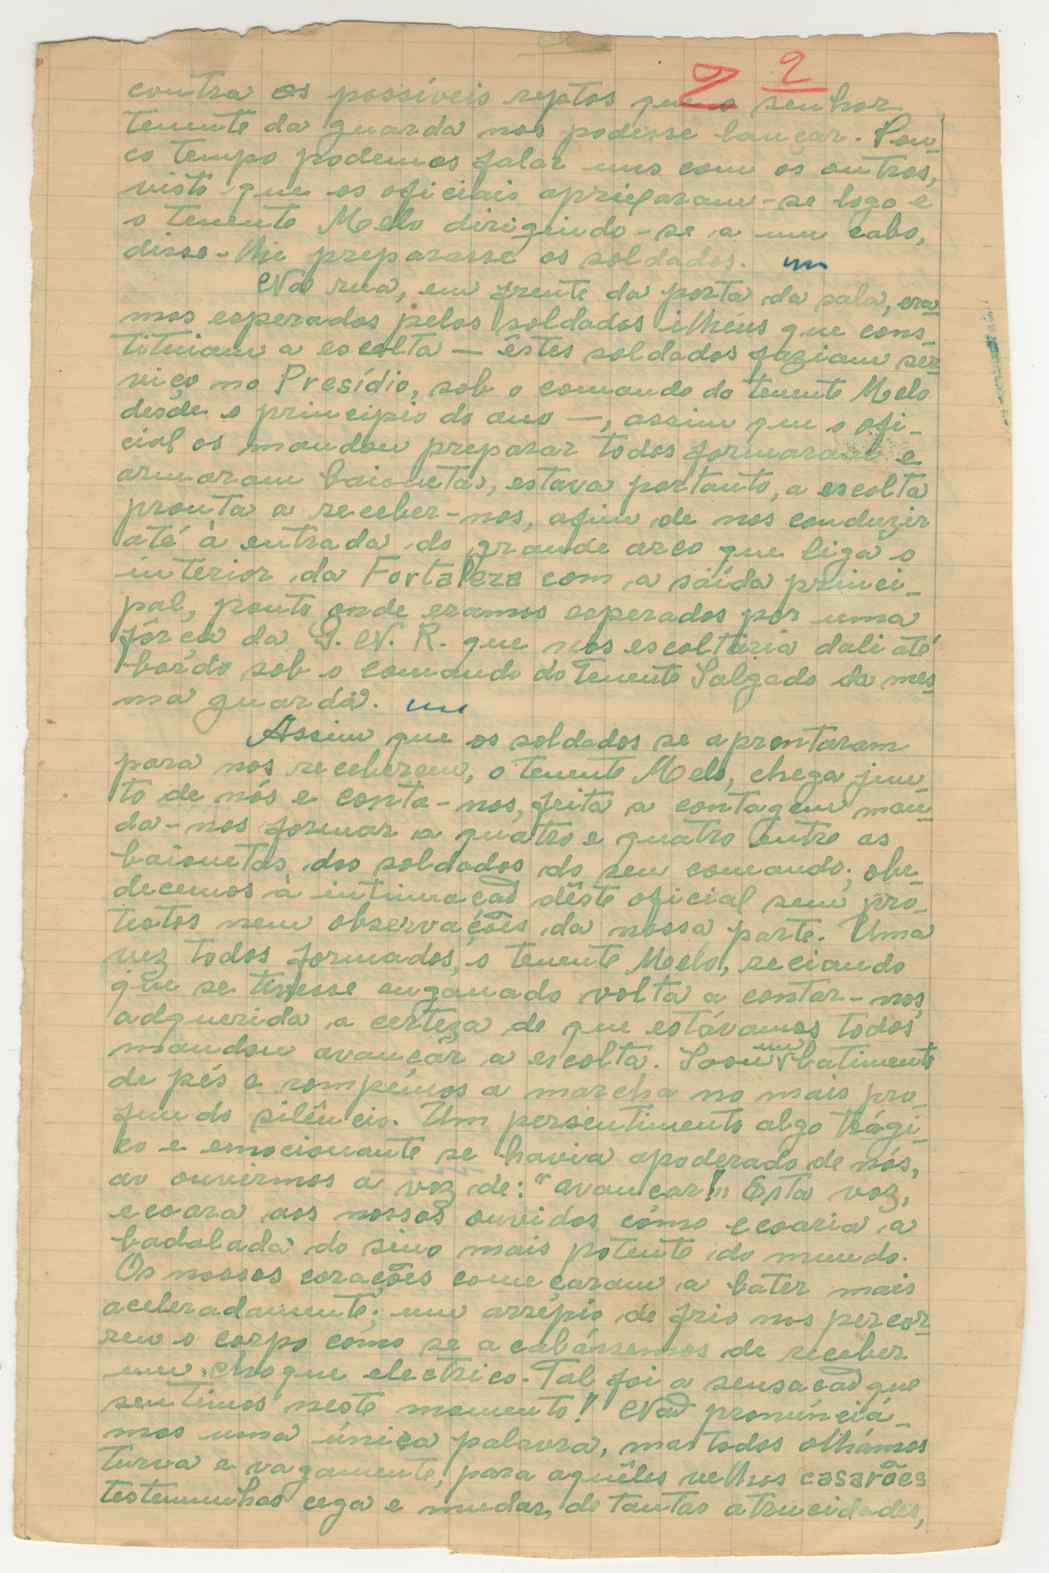 2 2
contra os possíveis reptos que o senhor
tenente da guarda nos podesse lançar. Pou-
co tempo podemos falar uns com os outros,
visto que os oficiais aprigaram-se logo e
o tenente Melo dirigindo-se a um cabo,
disse-lhe preparasse os soldados.
Na rua, em frente da porta da sala, era
mos esperados pelos soldados ilhéus que cons-
tituiam a escolta — êstes soldados faziam ser
viço no Presídio, sob o comando do tenente Melo
desde o principio do ano —, assim que o ofi-
cial os mandou preparar todos formaram e
armaram baioneta, estava portanto, a escolta
pronta a receber-nos, afim de nos conduzir
até à entrada do grande arco que liga o
interior da Fortaleza com a saída princi-
pal, ponto onde eramos esperados por uma
fôrça da G. N. R. que nos escoltaria dali até
bordo sob o comando do tenente Salgado da mes
ma guarda.
Assim que os soldados se aprontaram
para nos receberem, o tenente Melo, chega jun
to de nós e conta-nos, feita a contagem man-
da-nos formar a quatro e quatro entre as
baionetas dos soldados do seu comando; obe-
decemos à intimação dêste oficial sem pro-
testos nem observações da nossa parte. Uma
vez todos formados, o tenente Melo, reciando
que se tivesse enganado volta a contar-nos,
adquerida a certeza de que estávamos todos
mandou avançar a escolta. Soou um batimento
de pés e rompêmos a marcha no mais pro-
fundo silêncio. Um persentimento algo trági-
co e emocionante se havia apoderado de nós,
ao ouvirmos a voz de: "avançar!" Esta voz,
ecoara aos nossos ouvidos cômo ecoaria a
badalada do sino mais potente do mundo.
Os nossos corações começaram a bater mais
aceleradamente; um arrépio de frio nos percor-
reu o corpo como se acabássemos de receber
um choque electrico. Tal foi a sensação que
sentimos neste momento! Não pronunciá-
mos uma única palavra, mas todos olhámos
turva e vagamente, para aquêles velhos casarões
testemunhas cega e mudas, de tantas atrucidades,